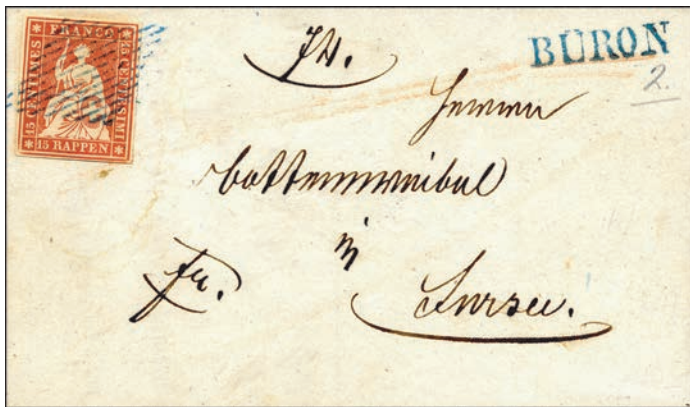 FRANCO
15 CENTIMES
15 CENTESIMI
15 RAPPEN
BURON
2.
Herrn
bottenweibel
in
fr.
Sursee.